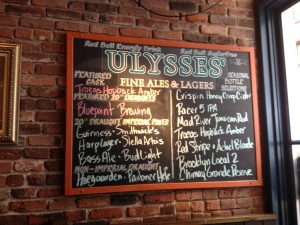 Red Bull Energy Drink
Red Bull Sugarfree
ULYSSES
FINE ALES & LAGERS
FEATURED CASK
Troegs Hopback Amber
FEATURED 20° DRAUGHTS
Bluepoint Brewing
20° DRAUGHT IMPERIAL PINTS
Guinness · Smithwick's
Harp Lager · Stella Artois
Bass Ale · Bud Light
NON-IMPERIAL DRAUGHTS
Hoegaarden ·
SEASONAL BOTTLE SELECTIONS
Crispin Honey Crisp Cider
Racer 5 IPA
Mad River Jamaican Red
Troegs Hopback Amber
Red Stripe · Achel Blonde
Brooklyn Local 2
Chimay Grande Reserve